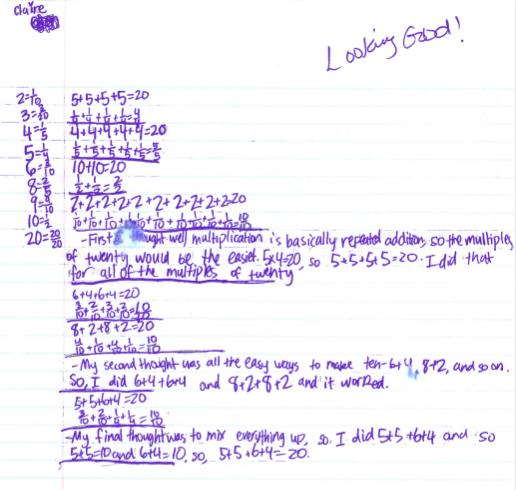 Claire
Looking Good!
2=1/10
3=3/20
4=1/5
5=1/4
6=3/10
8=2/5
9=9/20
10=1/2
20=20/20
5+5+5+5=20
1/4+1/4+1/4+1/4=4/4
4+4+4+4+4=20
1/5+1/5+1/5+1/5+1/5=5/5
10+10=20
1/2+1/2=2/2
2+2+2+2+2+2+2+2+2+2=20
1/10+1/10+1/10+1/10+1/10+1/10+1/10+1/10+1/10=10/10
-First I thought well multiplication is basically repeated addition, so the multiples
of twenty would be the easiest. 5x4=20, so 5+5+5+5=20. I did that
for all of the multiples of twenty
6+4+6+4=20
8+2+8+2=20
-My second thought was all the easy ways to make ten-6+4, 8+2, and so on.
So, I did 6+4+6+4 and 8+2+8+2 and it worked.
5+5+6+4=20
-My final thought was to mix everything up, so I did 5+5+6+4 and so
5+5=10 and 6+4=10, so, 5+5+6+4=20.